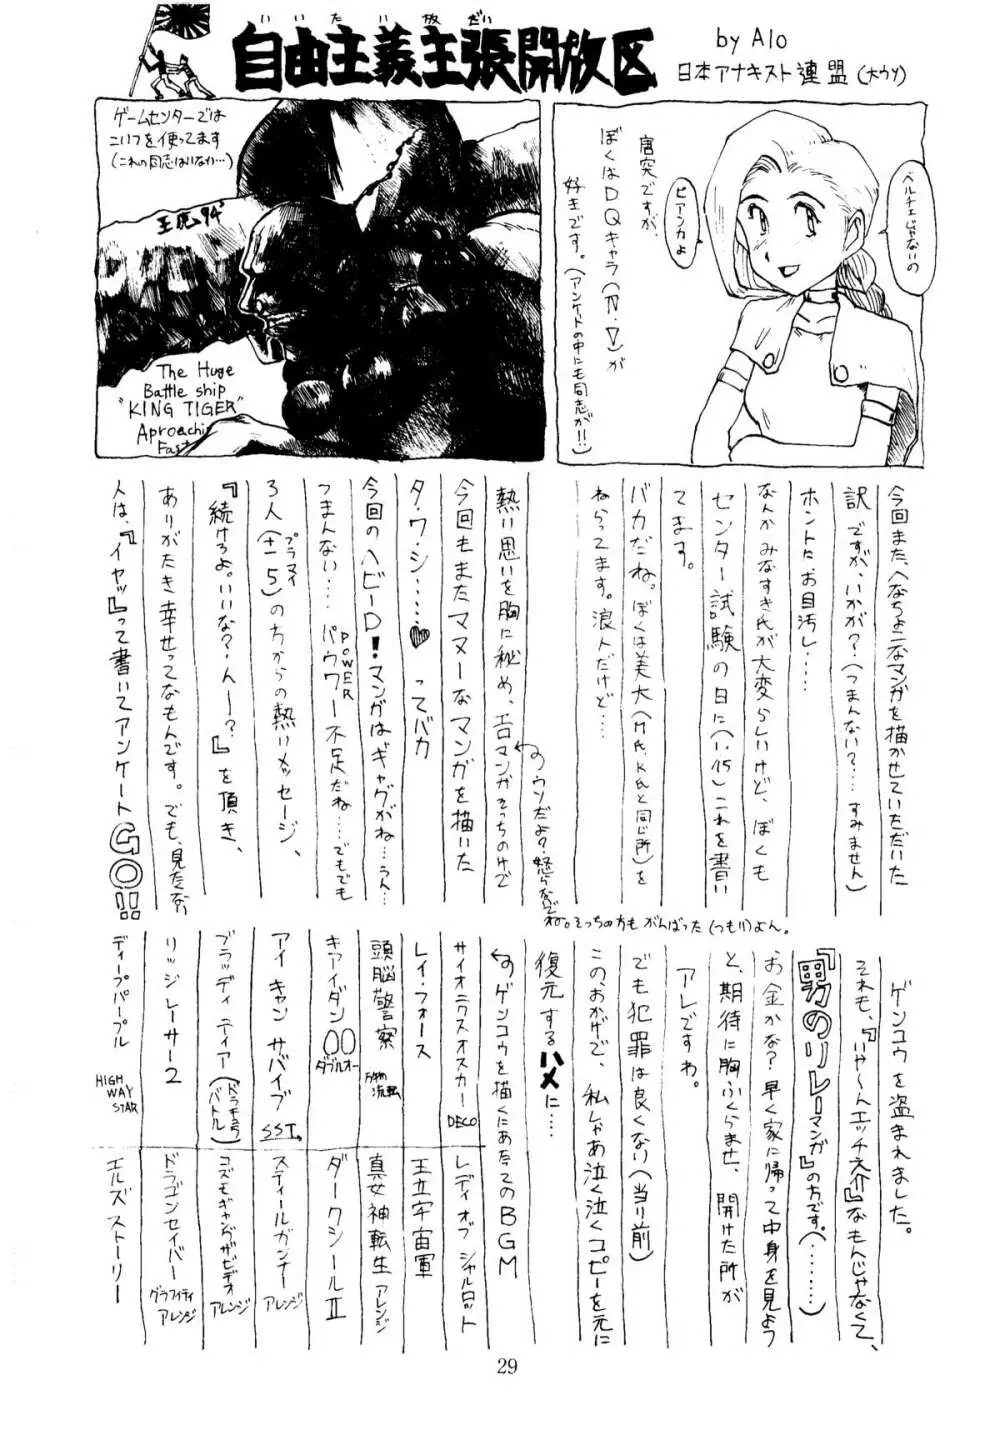 いいたい放だい
自由主義主張開放区
by Alo
日本アナキスト連盟(大ウソ)
ベルチェじゃないの
ビアンカよ
唐突ですが、
ぼくはDQキャラ(Ⅳ・Ⅴ)が
好きです。(アンケートの中にも同志が!!)
ゲームセンターでは
こいつを使ってます
(これの同志はいない…)
王虎 94'
The Huge
Battle ship
"KING TIGER"
Aproaching
Fast
今回また、へなちょこなマンガを描かせていただいた
訳ですが、いかが?(つまんない?…すみません)
ホントにお目汚し……
なんかみなすき氏が大変らしいけど、ぼくも
センター試験の日に(1.15)これを書い
てます。
バカだね。ぼくは美大(M氏、K氏と同じ所)を
ねらってます。浪人だけど…
熱い思いを胸に秘め、エロマンガそっちのけで
(の)ウソだよ?怒らないで
ね。そっちの方もがんばった(つもり)よん。
今回もまたマヌーなマンガを描いた
タ・ワ・シ……♥ってバカ
今回のヘビーD!マンガはギャグがね…うん…
つまんない…パウワー不足だね…でもでも
POWER
3人(±5)の方からの熱いメッセージ、
プラマイ
『続けろよ。いいな?んー?』を頂き、
ありがたき幸せってなもんです。でも、見たない
人は、『イヤッ』って書いてアンケートGO!!
ゲンコウを盗まれました。
それも、『いや〜んエッチ之介』なもんじゃなくて、
『男のリレーマンガ』の方です。(………)
お金かな?早く家に帰って中身を見よう
と、期待に胸ふくらませ、開けた所が
アレですわ。
でも犯罪は良くない(当り前)
この、おかげで、私しゃあ泣く泣くコピーを元に
復元するハメに…
(の)ゲンコウを描くにあたってのBGM
サイオニクスオスカー DECO
レイ・フォース
頭脳警察 万物流転
キアイダン00 ダブルオー
アイ キャン サバイブ SST
ブラッディ ティアー(ドラキュラバトル)
リッジレーサー2
ディープパープル HIGH WAY STAR
レディ オブ シャルロット
王立宇宙軍
真女神転生 アレンジ
ダークシールⅡ
スティールガンナー アレンジ
コズモギャングザビデオ アレンジ
ドラゴンセイバー グラフィティ アレンジ
エルズストーリー
29